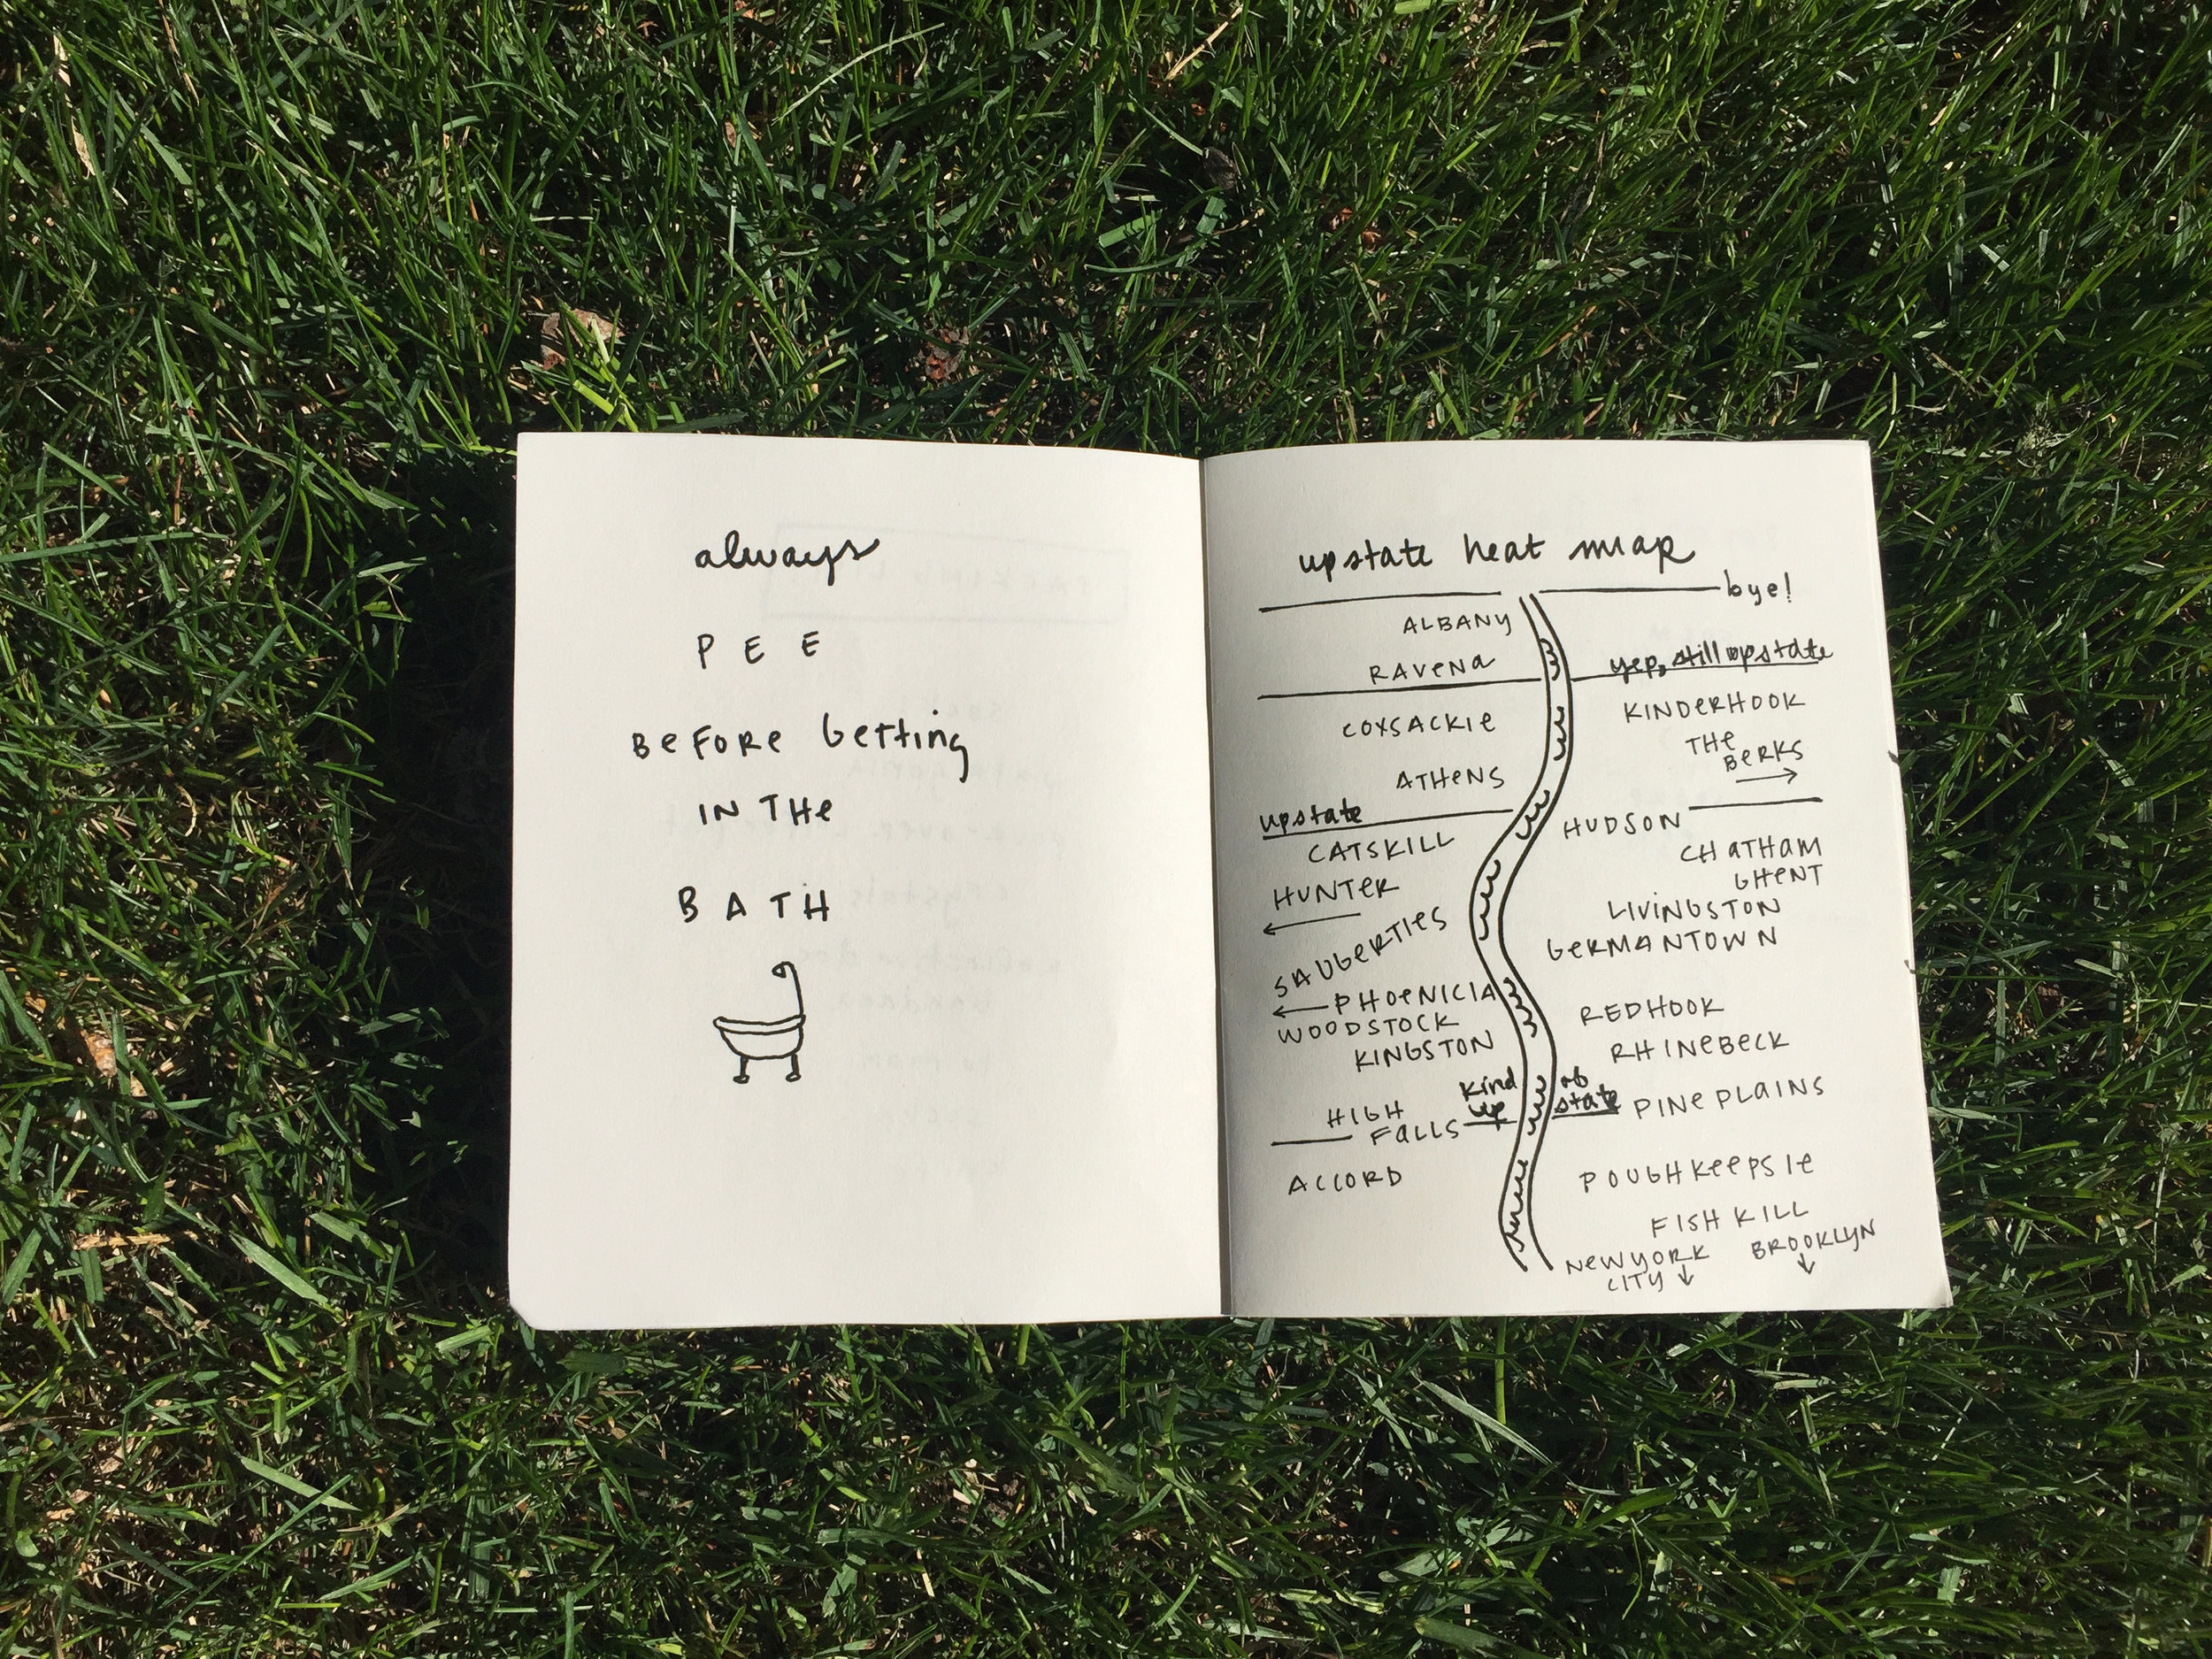 always
PEE
BEFORE GETTING
IN THE
BATH
upstate heat map
bye!
ALBANY
yep, still upstate
RAVENA
KINDERHOOK
COXSACKIE
THE
BERKS
ATHENS
upstate
HUDSON
CATSKILL
CHATHAM
GHENT
HUNTER
LIVINGSTON
SAUGERTIES
GERMANTOWN
PHOENICIA
REDHOOK
WOODSTOCK
KINGSTON
RHINEBECK
kind of
up state
PINE PLAINS
HIGH
FALLS
ACCORD
POUGHKEEPSIE
FISHKILL
NEW YORK
CITY
BROOKLYN